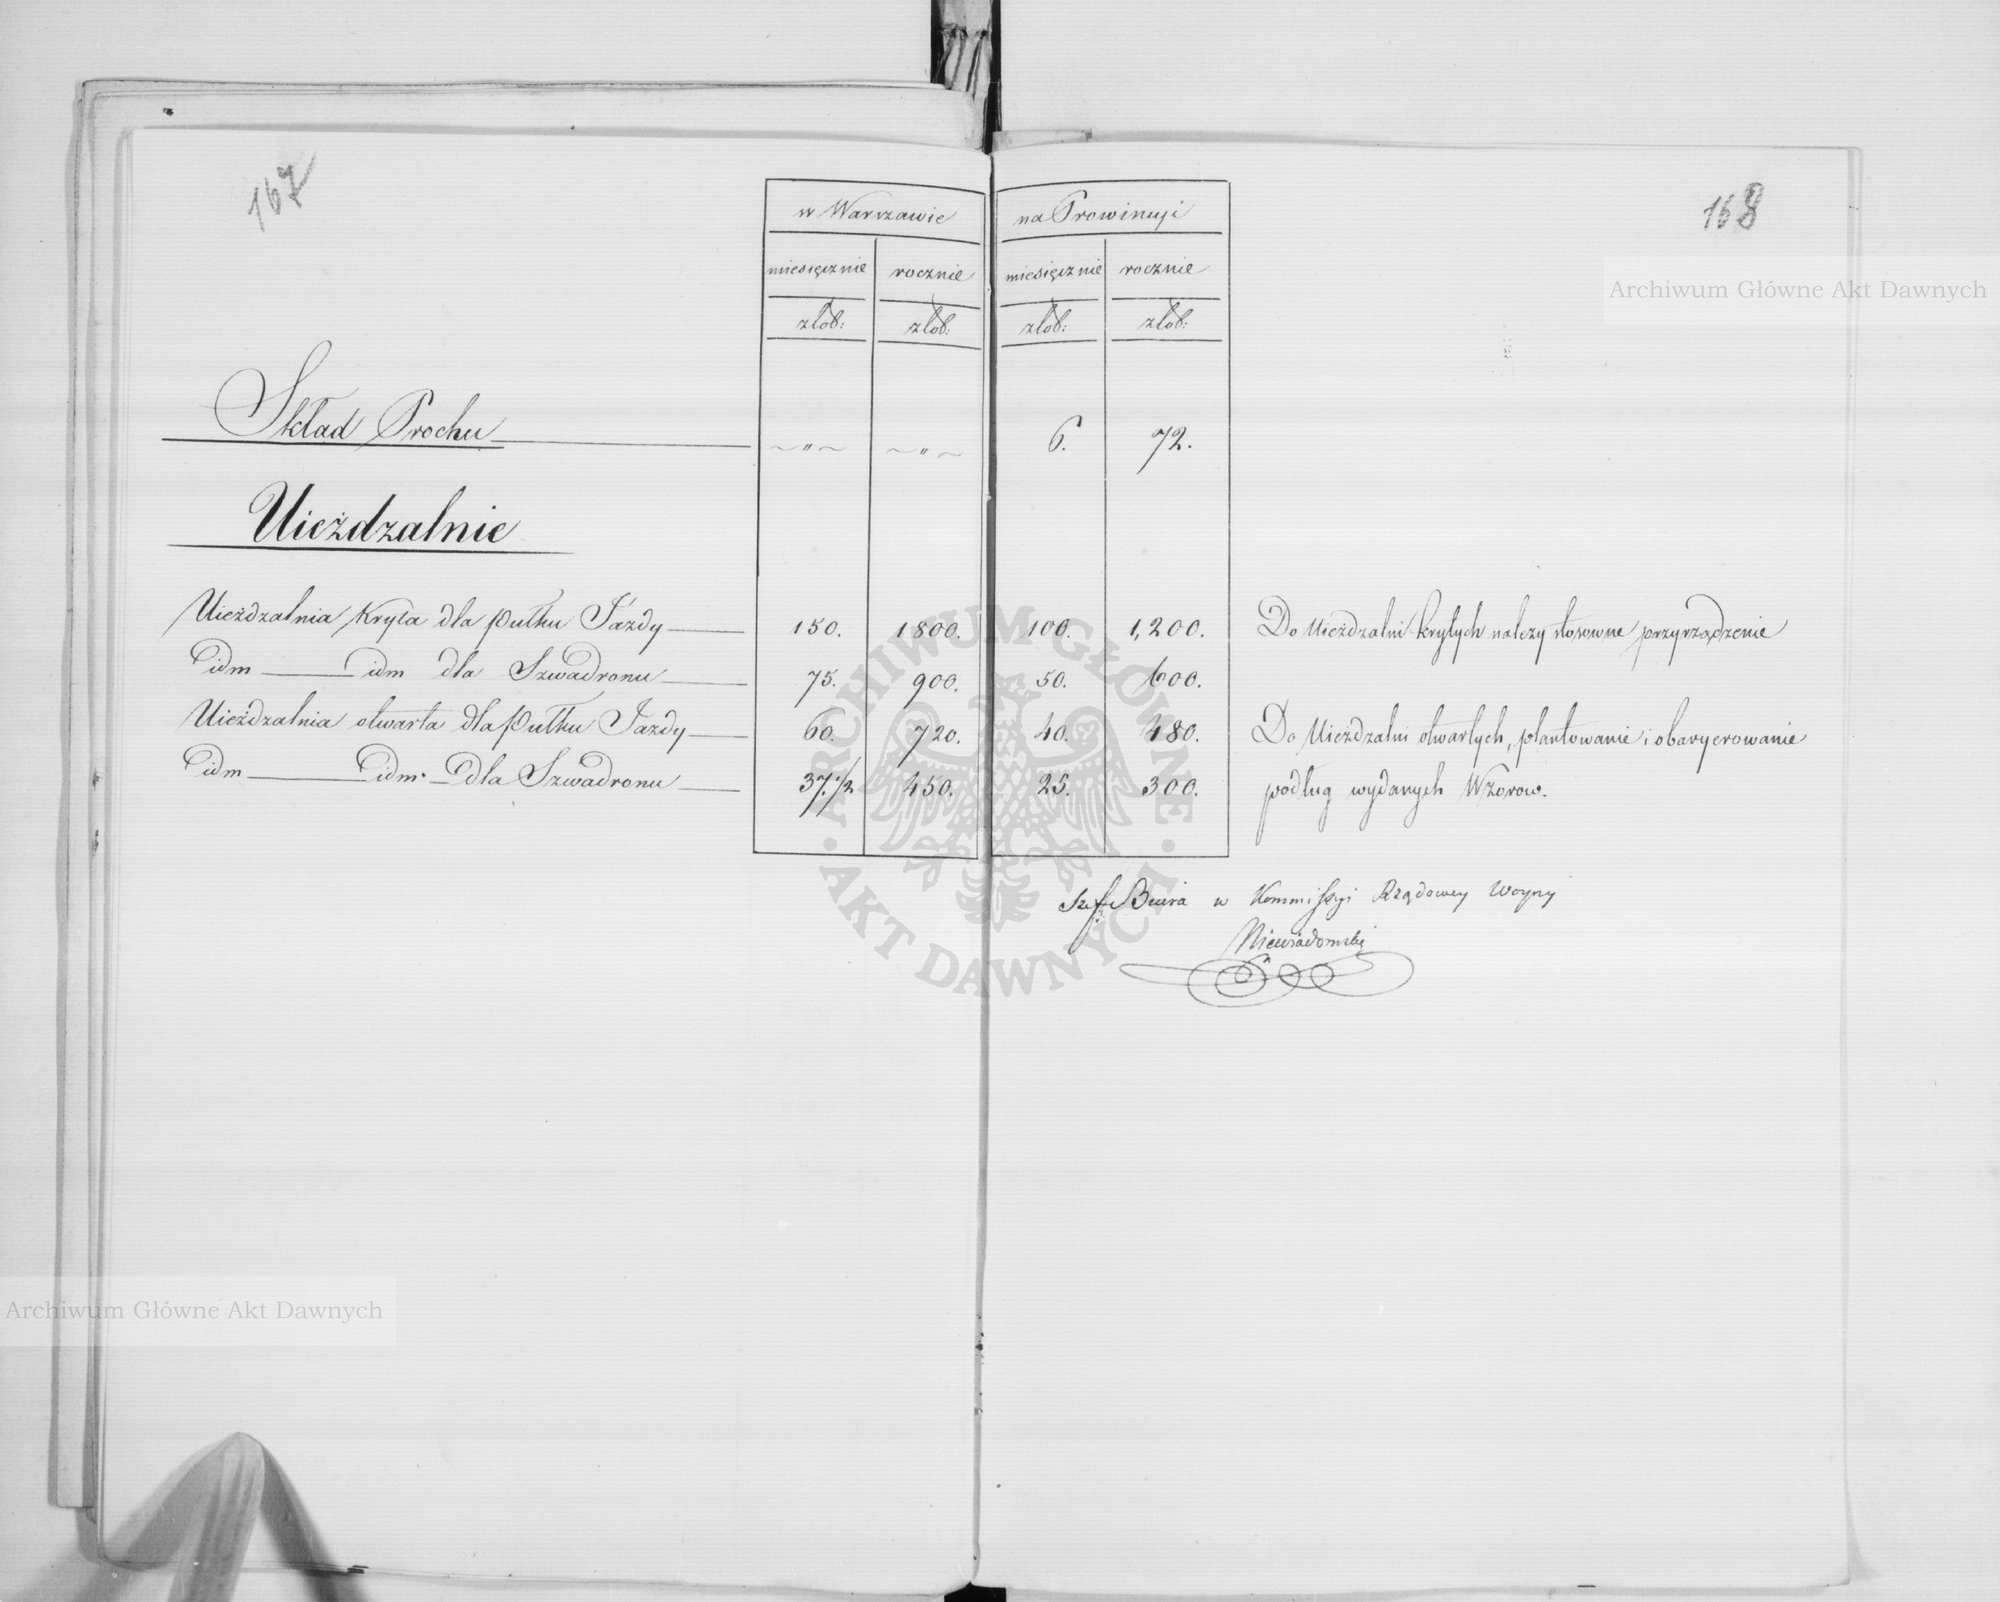 167
168
w Warszawie na Prowincyi
miesięcznie rocznie miesięcznie rocznie
złob: złob: złob: złob:
Skład Prochu ~ " ~ ~ " ~ 6. 72.
Uieżdzalnie
Uieżdzalnia Kryta dla pułku Jazdy 150. 1800. 100. 1,200. Do Uieżdzalni krytych należy stosowne przyrządzenie
idm idm dla Szwadronu 75. 900. 50. 600.
Uieżdzalnia otwarta dla pułku Jazdy 60. 720. 40. 480. Do Uieżdzalni otwartych, plantowanie i obaryerowanie
idm idm. dla Szwadronu 37.1/2 450. 25. 300. podług wydanych Wzorow.
Szef Biura w Kommissyi Rządowey Woyny
Niewiadomski
Archiwum Główne Akt Dawnych
Archiwum Główne Akt Dawnych
ARCHIWUM GŁÓWNE
AKT DAWNYCH